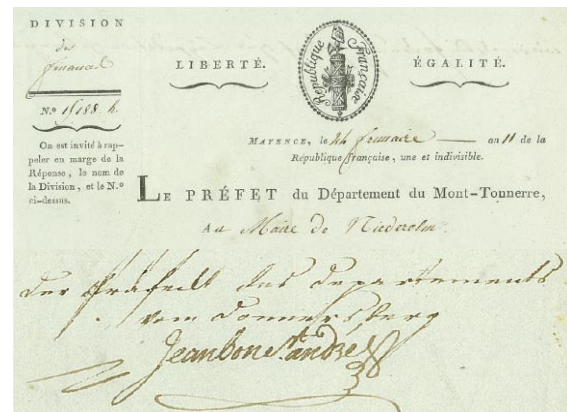 DIVISION
des
finances
N.º 15188. h.
On est invité à rap-
peler en marge de la
Réponse, le nom de
la Division, et le N.º
ci-dessus.
LIBERTÉ.
République Française
ÉGALITÉ.
MAYENCE, le 24 frimaire — an 11 de la
République française, une et indivisible.
LE PRÉFET du Département du Mont-Tonnerre,
Au Maire de Niederolm
Der Präfect des Departements
vom Donnersberg
Jeanbon St. André